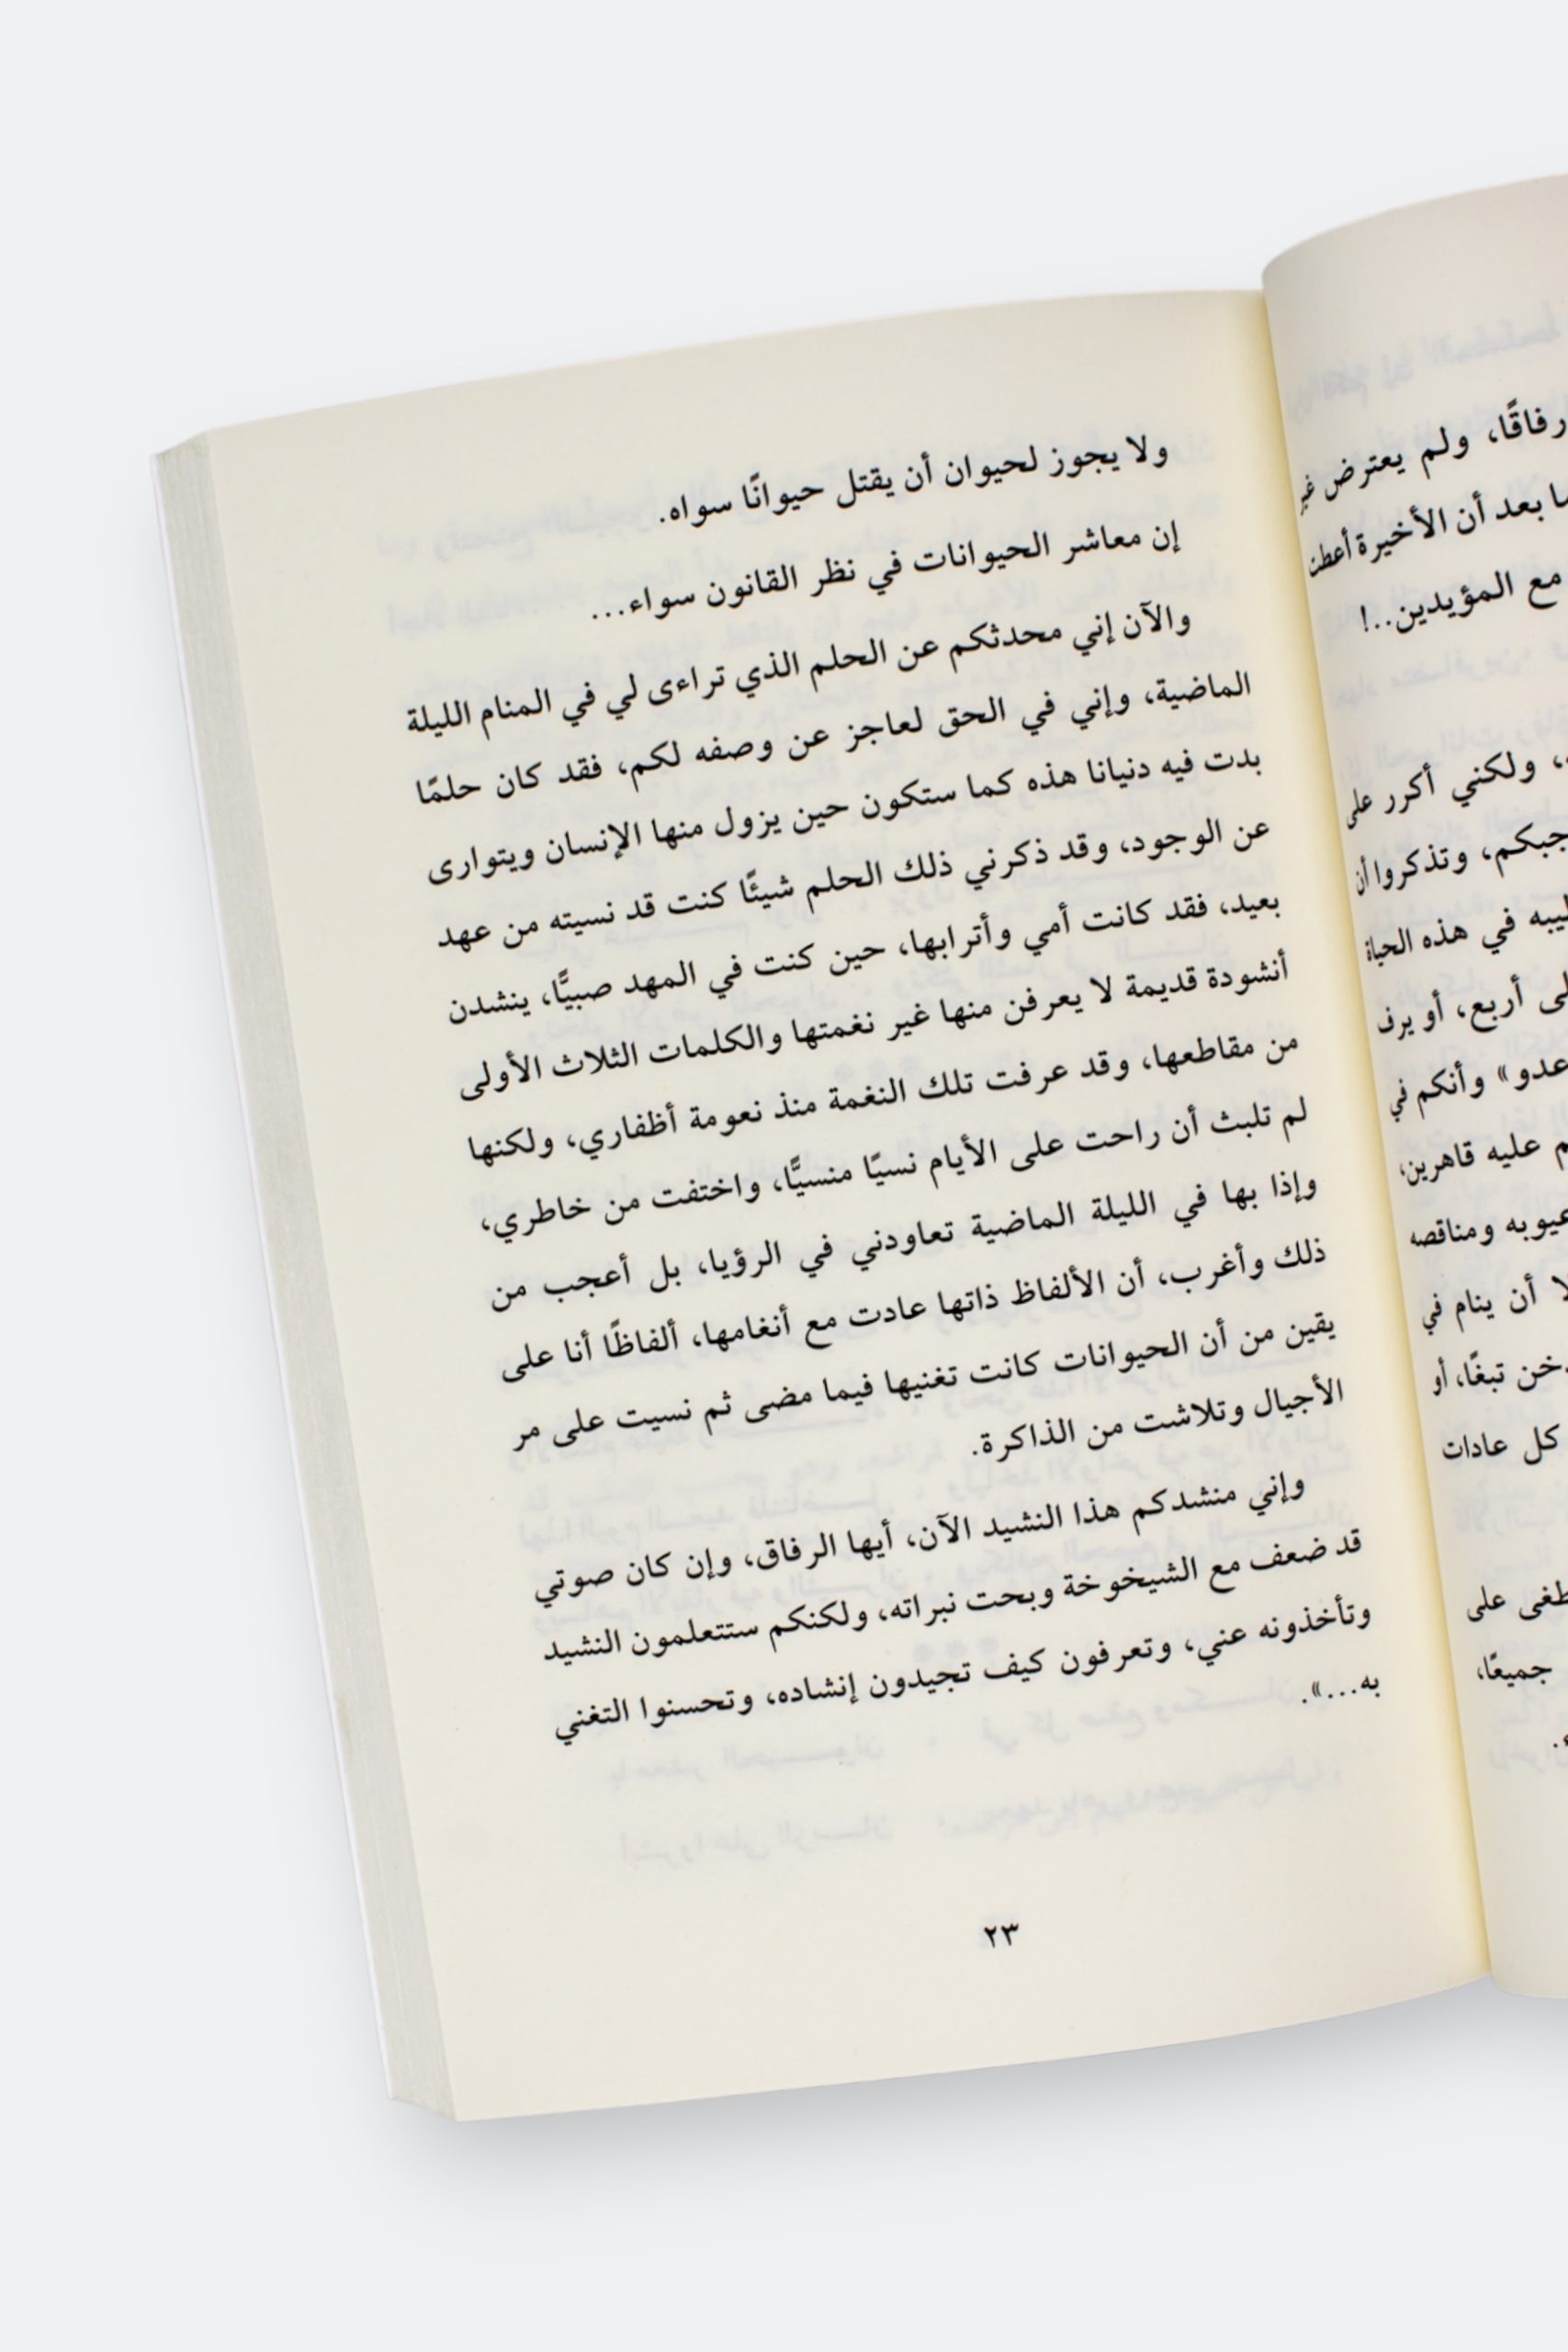 رفاقًا، ولم يعترض غير
بعد أن الأخيرة أعطت
مع المؤيدين..!
ولكني أكرر على
وتذكروا أن
في هذه الحياة
أربع، أو يرف
عدو» وأنكم في
عليه قاهرين،
عيوبه ومناقصه
أن ينام في
تبغًا، أو
كل عادات
على
جميعًا،
ولا يجوز لحيوان أن يقتل حيوانًا سواه.
إن معاشر الحيوانات في نظر القانون سواء...
والآن إني محدثكم عن الحلم الذي تراءى لي في المنام الليلة
الماضية، وإني في الحق لعاجز عن وصفه لكم، فقد كان حلمًا
بدت فيه دنيانا هذه كما ستكون حين يزول منها الإنسان ويتوارى
عن الوجود، وقد ذكرني ذلك الحلم شيئًا كنت قد نسيته من عهد
بعيد، فقد كانت أمي وأترابها، حين كنت في المهد صبيًّا، ينشدن
أنشودة قديمة لا يعرفن منها غير نغمتها والكلمات الثلاث الأولى
من مقاطعها، وقد عرفت تلك النغمة منذ نعومة أظفاري، ولكنها
لم تلبث أن راحت على الأيام نسيًا منسيًّا، واختفت من خاطري،
وإذا بها في الليلة الماضية تعاودني في الرؤيا، بل أعجب من
ذلك وأغرب، أن الألفاظ ذاتها عادت مع أنغامها، ألفاظًا أنا على
يقين من أن الحيوانات كانت تغنيها فيما مضى ثم نسيت على مر
الأجيال وتلاشت من الذاكرة.
وإني منشدكم هذا النشيد الآن، أيها الرفاق، وإن كان صوتي
قد ضعف مع الشيخوخة وبحت نبراته، ولكنكم ستتعلمون النشيد
وتأخذونه عني، وتعرفون كيف تجيدون إنشاده، وتحسنوا التغني
به...».
٢٣